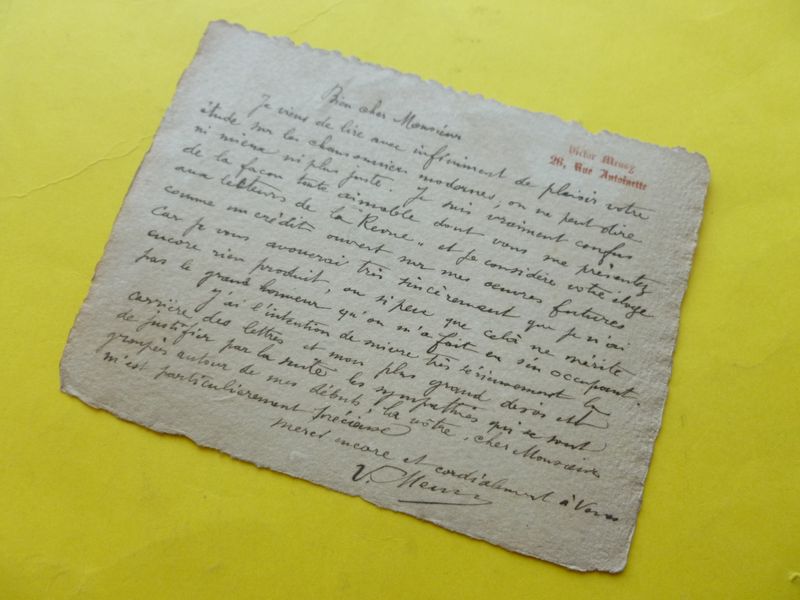 Victor Meusy
28, Rue Antoinette
Bien cher Monsieur
Je viens de lire avec infiniment de plaisir votre
étude sur les chansonniers modernes, on ne peut dire
ni mieux ni plus juste. Je suis vraiment confus
de la façon toute aimable dont vous me présentez
aux lecteurs de la "Revue" et je considère votre éloge
comme un crédit ouvert sur mes œuvres futures
Car je vous avouerai très sincèrement que je n'ai
encore rien produit, ou si peu que celà ne mérite
pas le grand honneur qu'on m'a fait en s'en occupant.
J'ai l'intention de suivre très sérieusement la
carrière des lettres et mon plus grand désir est
de justifier par la suite les sympathies qui se sont
groupés autour de mes débuts, la vôtre, cher Monsieur
m'est particulièrement précieuse
Merci encore et cordialement à vous
V. Meusy